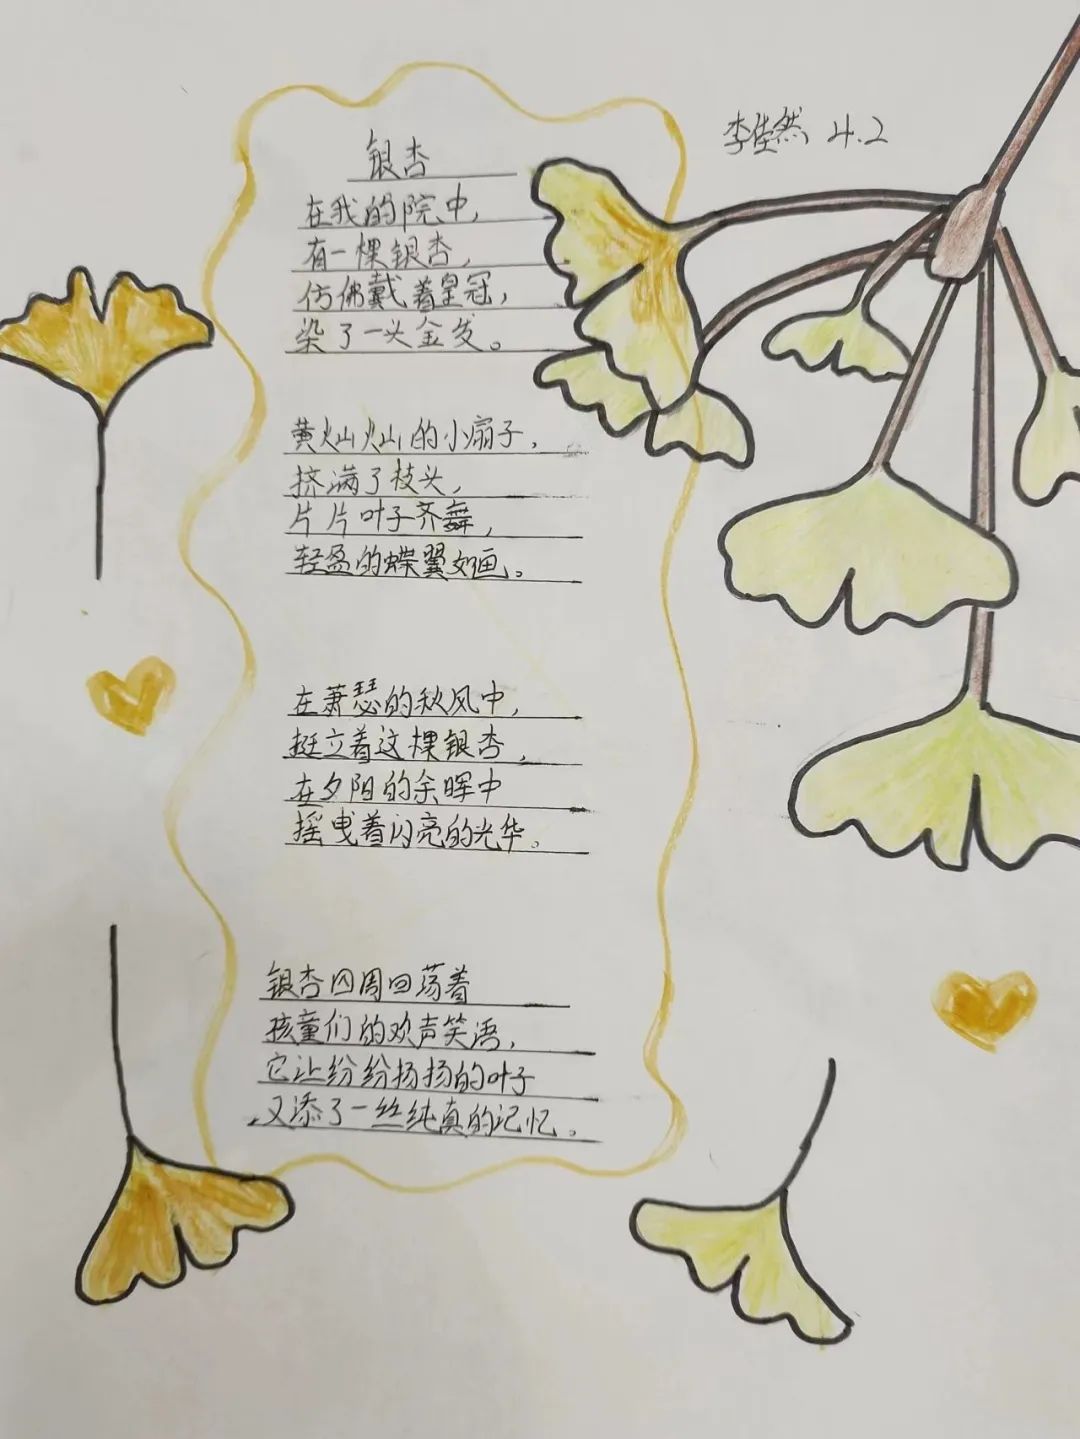 李佳然 4.2
银杏
在我的院中，
有一棵银杏，
仿佛戴着皇冠，
染了一头金发。
黄灿灿的小扇子，
挤满了枝头，
片片叶子齐舞，
轻盈的蝶翼如画。
在萧瑟的秋风中，
挺立着这棵银杏，
在夕阳的余晖中
摇曳着闪亮的光华。
银杏四周回荡着
孩童们的欢声笑语，
它让纷纷扬扬的叶子
又添了一丝纯真的记忆。